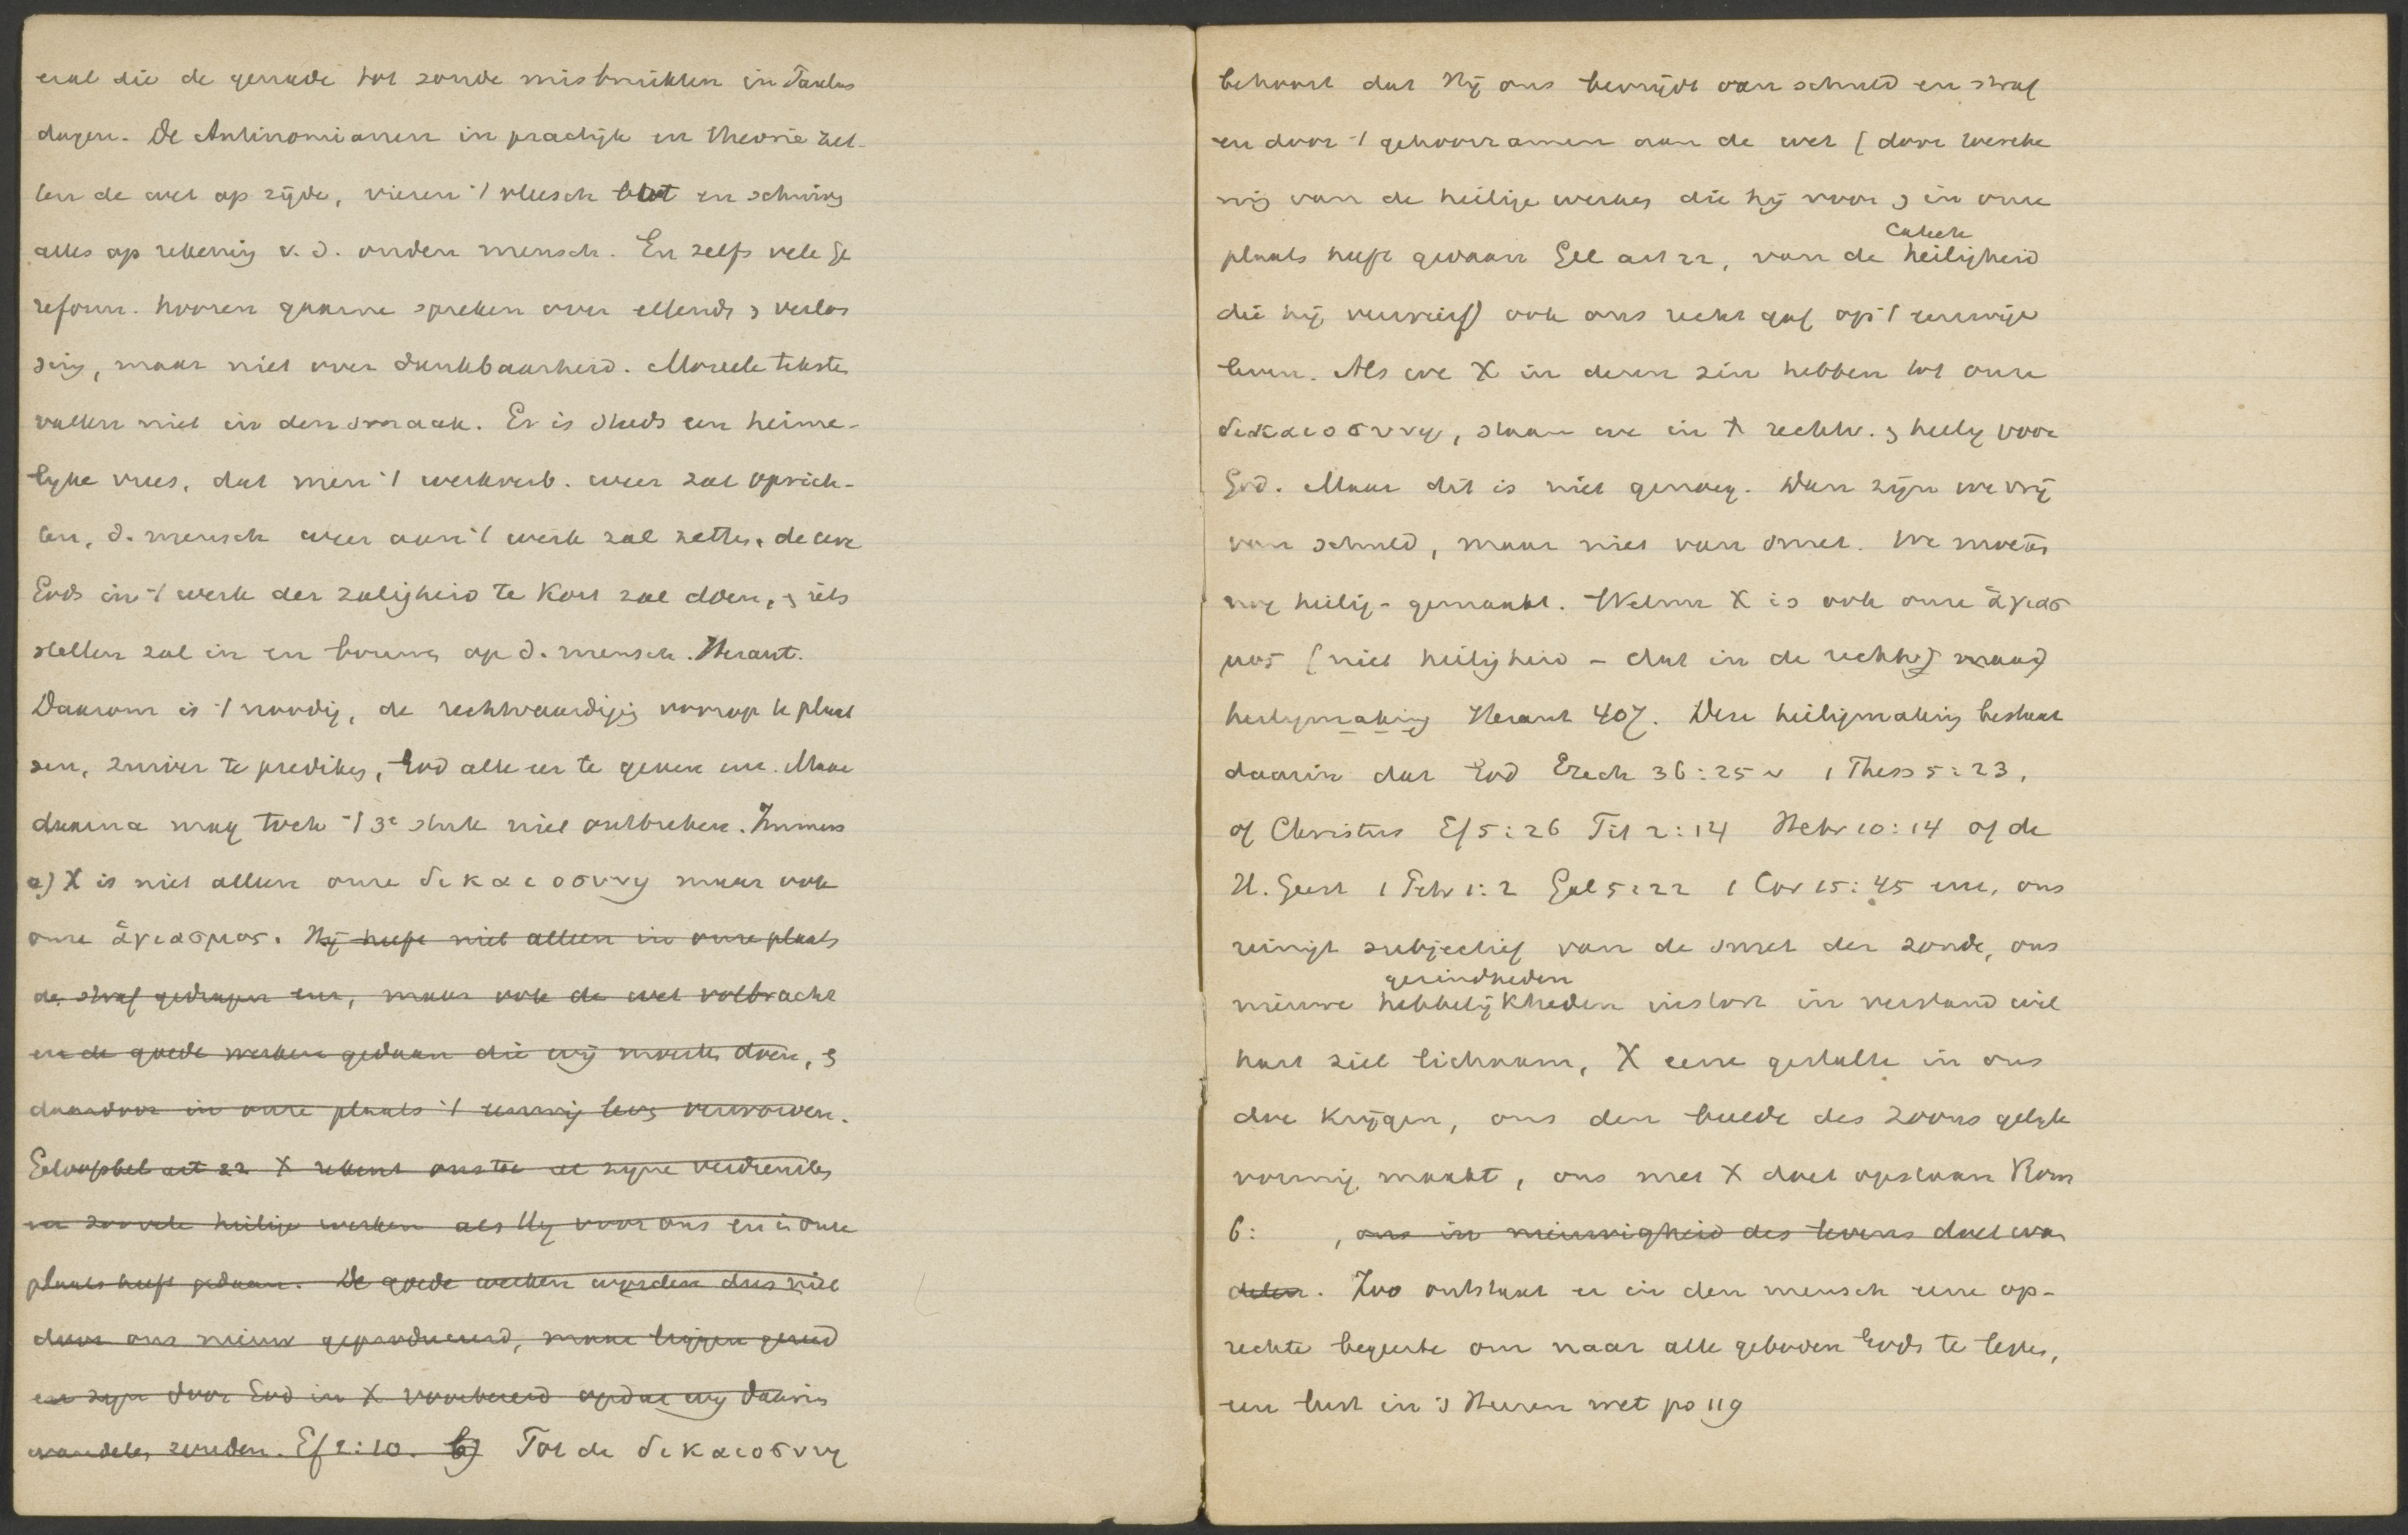 eral die de genade tot zonde misbruikten in Paulus
dagen. De Antinomianen in practijk en theorie zet-
ten de wet op zijde, vieren 't vleesch bot en schuiven
alles op rekening v. d. ouden mensch. En zelfs vele Ge
reform. hooren gaarne spreken over ellende & verlos
sing, maar niet over dankbaarheid. Moreele teksten
vallen niet in den smaak. Er is steeds een heime-
lyke vrees, dat men 't werkverb. weer zal oprich-
ten, d. mensch weer aan 't werk zal zetten, de eere
Gods in 't werk der zaligheid te kort zal doen, & iets
stellen zal in en bouwen op d. mensch. Heraut.
Daarom is 't noodig, de rechtvaardiging voorop te plaat
sen, zuiver te prediken, God alle eer te geven enz. Maar
daarna mag toch 't 3e stuk niet ontbreken. Immers
a) X is niet alleen onze δικαιοσυνη maar ook
onze ἁγιασμος. Hij heeft niet alleen in onze plaats
de straf gedragen enz, maar ook de wet volbracht
en de goede werken gedaan die wij moesten doen, &
daardoor in onze plaats 't eeuwig leven verworven.
Geloofsbel art 22 X rekent ons toe al zyne verdiensten
en zoovele heilige werken als Hy voor ons en in onze
plaats heeft gedaan. De goede werken worden dus niet
door ons nieuw geproduceerd, maar liggen gereed
en zyn door God in X voorbereid opdat wy daarin
wandelen zouden. Ef 2:10. b) Tot de δικαιοσυνη
behoort dat Hij ons bevrijdt van schuld en straf
en door 't gehoorzamen aan de wet (door toereke
ning van de heilige werken die hij voor & in onze
plaats heeft gedaan Gel art 22, van de heiligheid
Catech
die hij verwierf) ook ons recht gaf op 't eeuwige
leven. Als we X in dezen zin hebben tot onze
δικαιοσυνη, staan we in X rechtv. & heilig voor
God. Maar dit is niet genoeg. Dan zijn we vrij
van schuld, maar niet van smet. We moeten
nog heilig-gemaakt. Welnu X is ook onze ἁγιασ
μος (niet heiligheid - dat in de rechtv) maar
heiligmaking Heraut 407. Deze heiligmaking bestaat
daarin dat God Ezech 36:25v 1 Thess 5:23,
of Christus Ef 5:26 Tit 2:14 Hebr 10:14 of de
H. Geest 1 Petr 1:2 Gal 5:22 1 Cor 15:45 enz, ons
reinigt subjectief van de smet der zonde, ons
gezindheden
nieuwe hebbelijkheden instort in verstand wil
hart ziel lichaam, X eene gestalte in ons
doe krijgen, ons den beelde des Zoons gelyk
vormig maakt, ons met X doet opstaan Rom
6: , ons in nieuwigheid des levens doet wan
delen. Zoo ontstaat er in den mensch eene op-
rechte begeerte om naar alle geboden Gods te leven,
een lust in 's Heeren wet ps 119